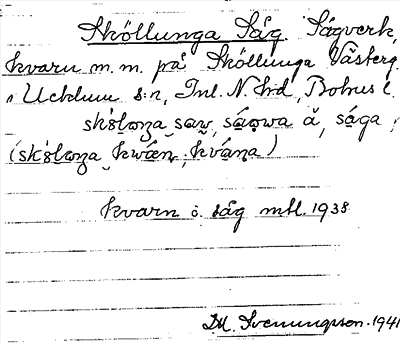 Sköllunga Såg. Sågverk,
kvarn m.m. på Sköllunga Västerg.
i Ucklum s:n, Inl. N. hd, Bohus l.
sköloŋa saw, såowa å, såga,
(sköloŋa kwæn, kvána)
kvarn o. såg mtl. 1938
M. Svenungsson. 1941